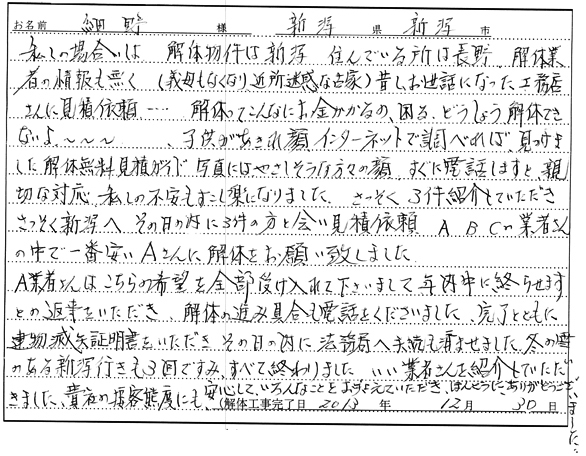 お名前 細野 様 新潟 県 新潟 市
私しの場合いは 解体物件は新潟 住んでいる所は長野、解体業
者の情報も無く (義母もなくなり近所迷惑な古家) 昔しお世話になった工務店
さんに見積依頼… 解体ってこんなにお金かかるの、困る、どうしよう解体でき
ないよ〜〜〜 、子供があきれ顔インターネットで調べれば、見つけま
した解体無料見積ガイド 写真にはやさしそうな方々の顔、すぐに電話しますと、親
切な対応、私しの不安もすこし楽になりました、さっそく3件紹介していただき
さっそく新潟へ その日の内に3件の方と会い見積依頼 A B Cの業者さん
の中で一番安いAさんに解体をお願い致しました
A業者さんはこちらの希望を全部受け入れて下さいまして年内中に終らせます
との返事をいただき、解体の進み具合も電話をくださいました、完了とともに
建物滅失証明書をいただき その日の内に法務局へ手続も済ませました、冬の雪
のある新潟行きも3回ですみ、すべて終わりました いい業者さんを紹介していただ
きました、貴社の接客態度にも、安心して、いろんなことおしえていただき、ほんとうにありがとうございました、
(解体工事完了日 2013 年 12 月 30 日